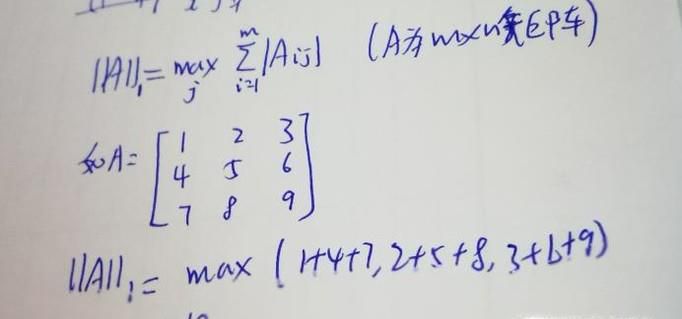 ||A||₁ = max_j Σ_{i=1}^{m} |Aij| (A为m×n矩阵)
如A = [1 2 3
4 5 6
7 8 9]
||A||₁ = max (1+4+7, 2+5+8, 3+6+9)